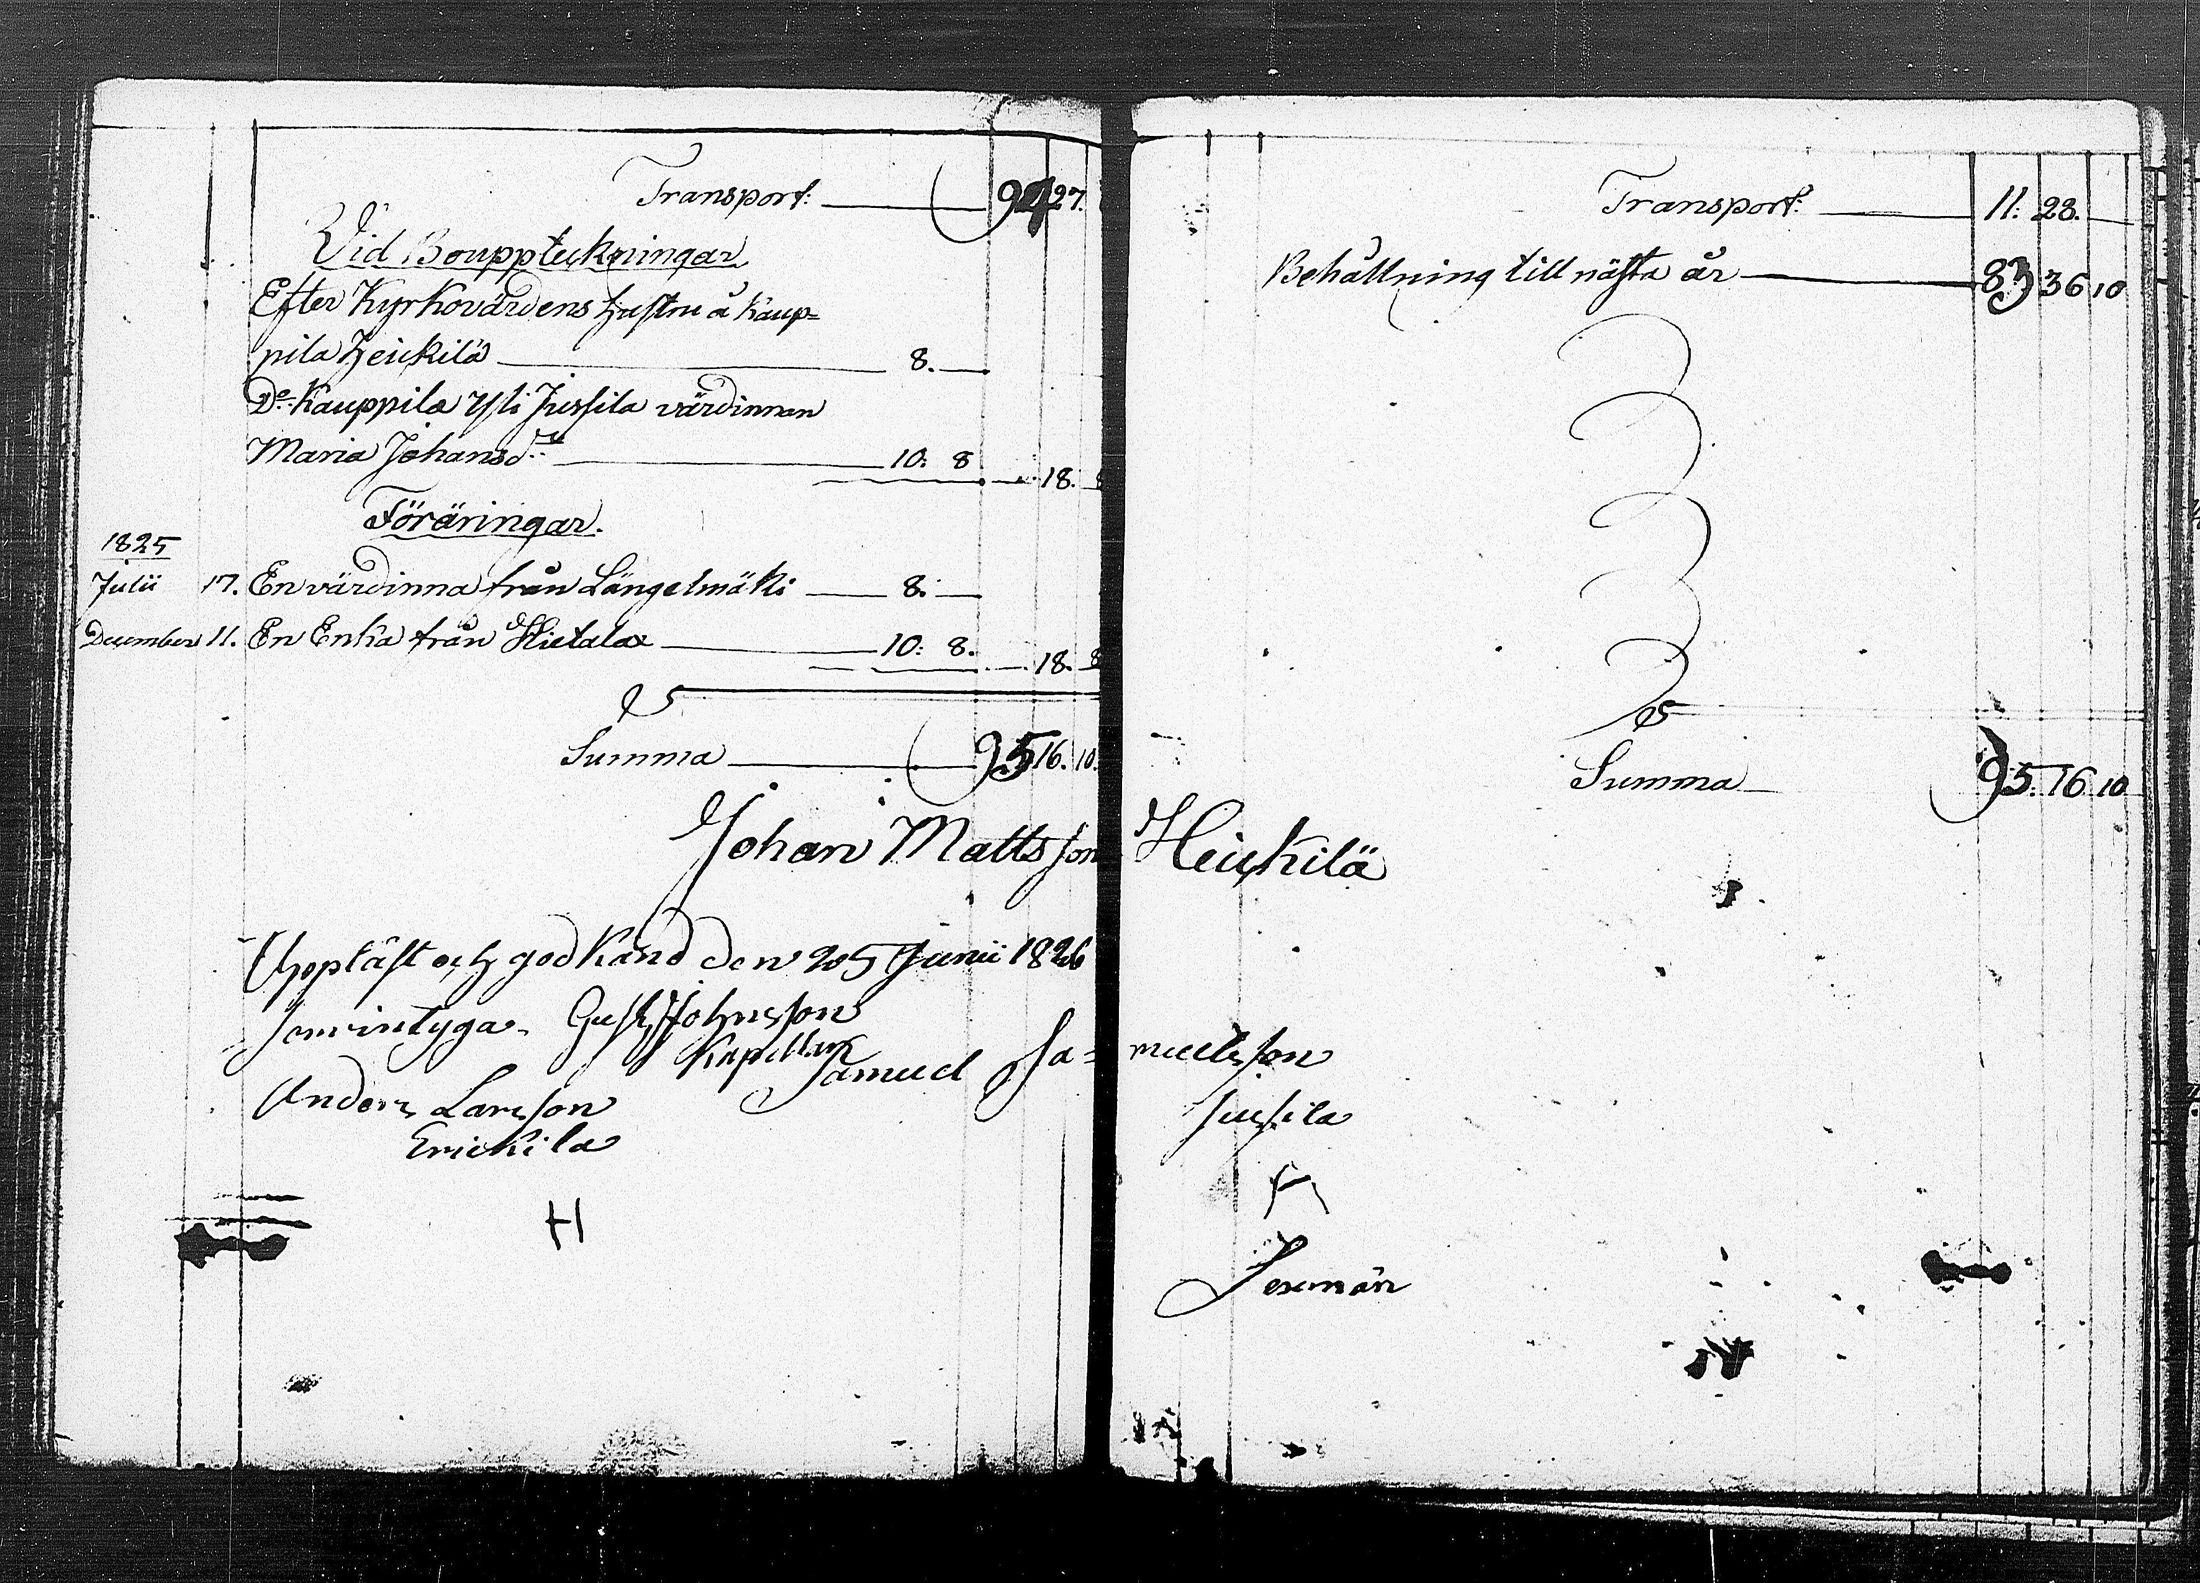 Transport: 94 27.
Vid Bouppteckningar
Efter Kyrkovärdens hustru å Kaup=
pila Heickilä 8.
Do Kauppila Yli Jussila värdinnan
Maria Johansdr 10: 8 18. 8
Föräringar.
1825
Julii 17. En värdinna från Längelmäki 8.
December 11. En Enka från Hietala 10: 8. 18. 8
Summa 95 16. 10.
Johan Mattsson Heickilä
Uppläst och godkänd den 25 Junii 1826
Gust Johnsson
Kapellan
Samuel Sa=muelsson
Jussila
Anders Larsson
Erickila
H
Transport: 11: 28.
Behållning till nästa år 83 36 10
Summa 95. 16 10